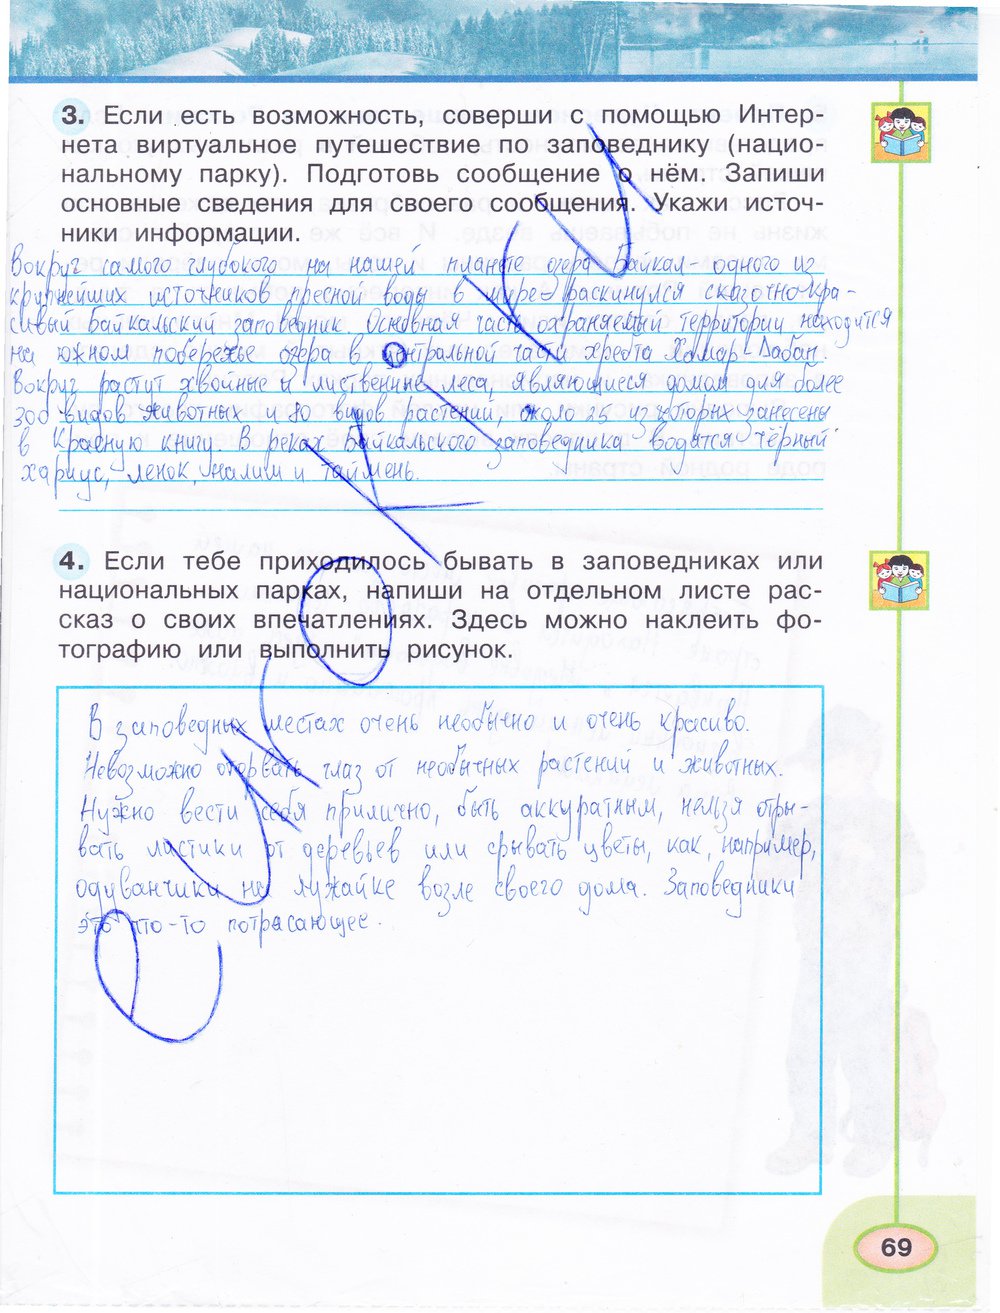 3. Если есть возможность, соверши с помощью Интер-
нета виртуальное путешествие по заповеднику (нацио-
нальному парку). Подготовь сообщение о нём. Запиши
основные сведения для своего сообщения. Укажи источ-
ники информации.
Вокруг самого глубокого на нашей планете озера Байкал - одного из
крупнейших источников пресной воды в мире - раскинулся сказочно-кра-
сивый Байкальский заповедник. Основная часть охраняемый территории находится
на южном побережье озера в центральной части хребта Хамар-Дабан.
Вокруг растут хвойные и лиственние леса, являющиеся домом для более
300 видов животных и 80 видов растений, около 25 из которых занесены
в Красную книгу. В реках Байкальского заповедника водятся чёрный
хариус, ленок, налим и таймень.
4. Если тебе приходилось бывать в заповедниках или
национальных парках, напиши на отдельном листе рас-
сказ о своих впечатлениях. Здесь можно наклеить фо-
тографию или выполнить рисунок.
В заповедных местах очень необычно и очень красиво.
Невозможно оторвать глаз от необычных растений и животных.
Нужно вести себя прилично, быть аккуратным, нельзя отры-
вать листики от деревьев или срывать цветы, как, например,
одуванчики на лужайке возле своего дома. Заповедники
это что-то потрясающее.
еигроки.ru
69